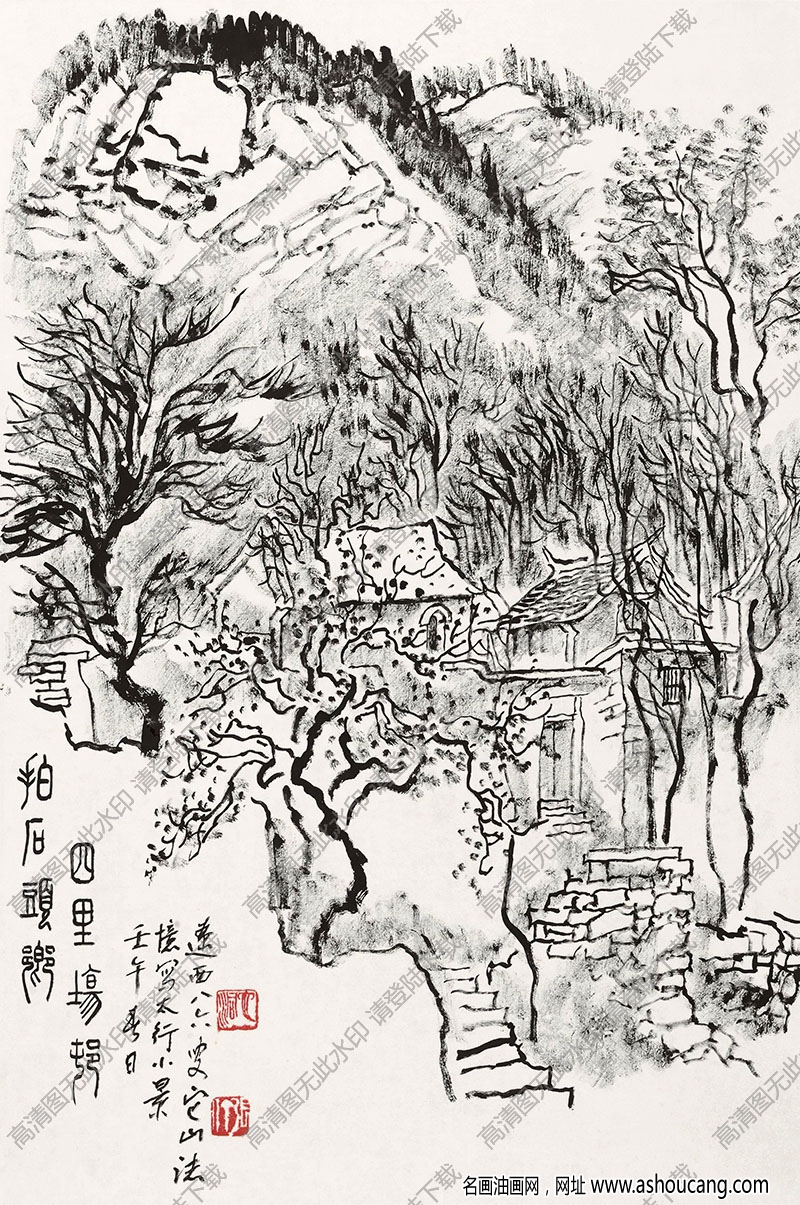 拍石頭鄉
四里場邨
遼西八六叟它山
憶寫太行小景
壬午春日
高清图无此水印 请登陆下载
名画油画网，网址 www.ashoucang.com